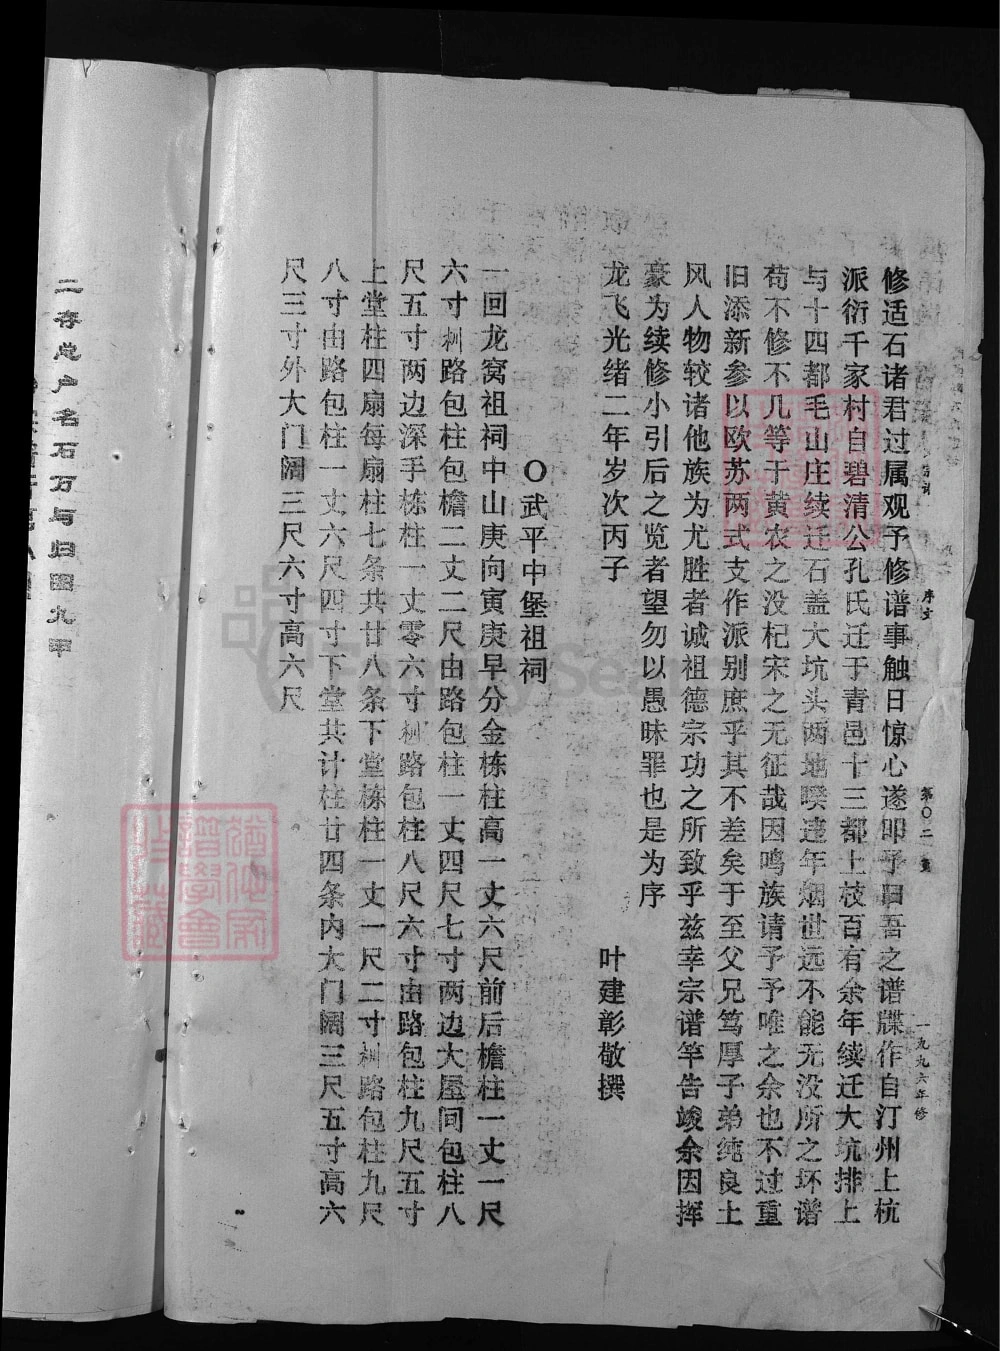 序文
第〇二
一九九六年修
修适石诸君过属观予修谱事触日惊心遂叩予曰吾之谱牒作自汀州上杭
派衍千家村自碧清公孔氏迁于青邑十三都上枝百有余年续迁大坑排上
与十四都毛山庄续迁石盖大坑头两地暌违年烟世远不能无没所之坏谱
苟不修不几等于黄农之没杞宋之无征哉因鸣族请予予唯之余也不过重
旧添新参以欧苏两式支作派别庶乎其不差矣于至父兄笃厚子弟纯良土
风人物较诸他族为尤胜者诚祖德宗功之所致乎兹幸宗谱竿告竣余因挥
豪为续修小引后之览者望勿以愚昧罪也是为序
龙飞光绪二年岁次丙子 叶建彰敬撰
〇武平中堡祖祠
一回龙窝祖祠中山庚向寅庚早分金栋柱高一丈六尺前后檐柱一丈一尺
六寸树路包柱包檐二丈二尺由路包柱一丈四尺七寸两边大屋间包柱八
尺五寸两边深手栋柱一丈零六寸树路包柱八尺六寸由路包柱九尺五寸
上堂柱四扇每扇柱七条共廿八条下堂栋柱一丈一尺二寸树路包柱九尺
八寸由路包柱一丈六尺四寸下堂共计柱廿四条内大门阔三尺五寸高六
尺三寸外大门阔三尺六寸高六尺
二存总户名石万与归图九甲